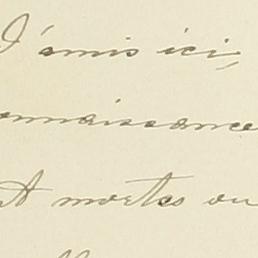 d'amis ici,
onnaissance
nt mortes ou